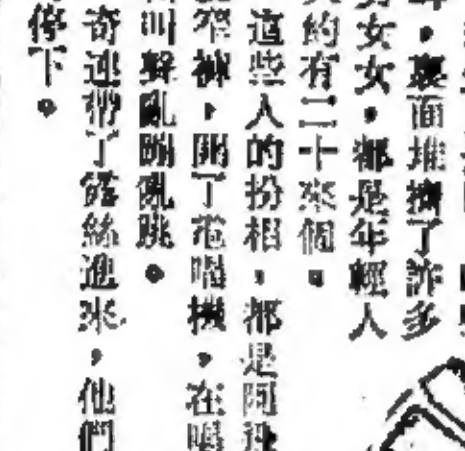 ，裏面堆擠了許多
女女，都是年輕人
約有二十來個。
這些人的扮相，都是阿飛
窄褲，開了電唱機，在唱
叫聲亂蹦亂跳。
奇連帶了露絲進來，他們
停下。